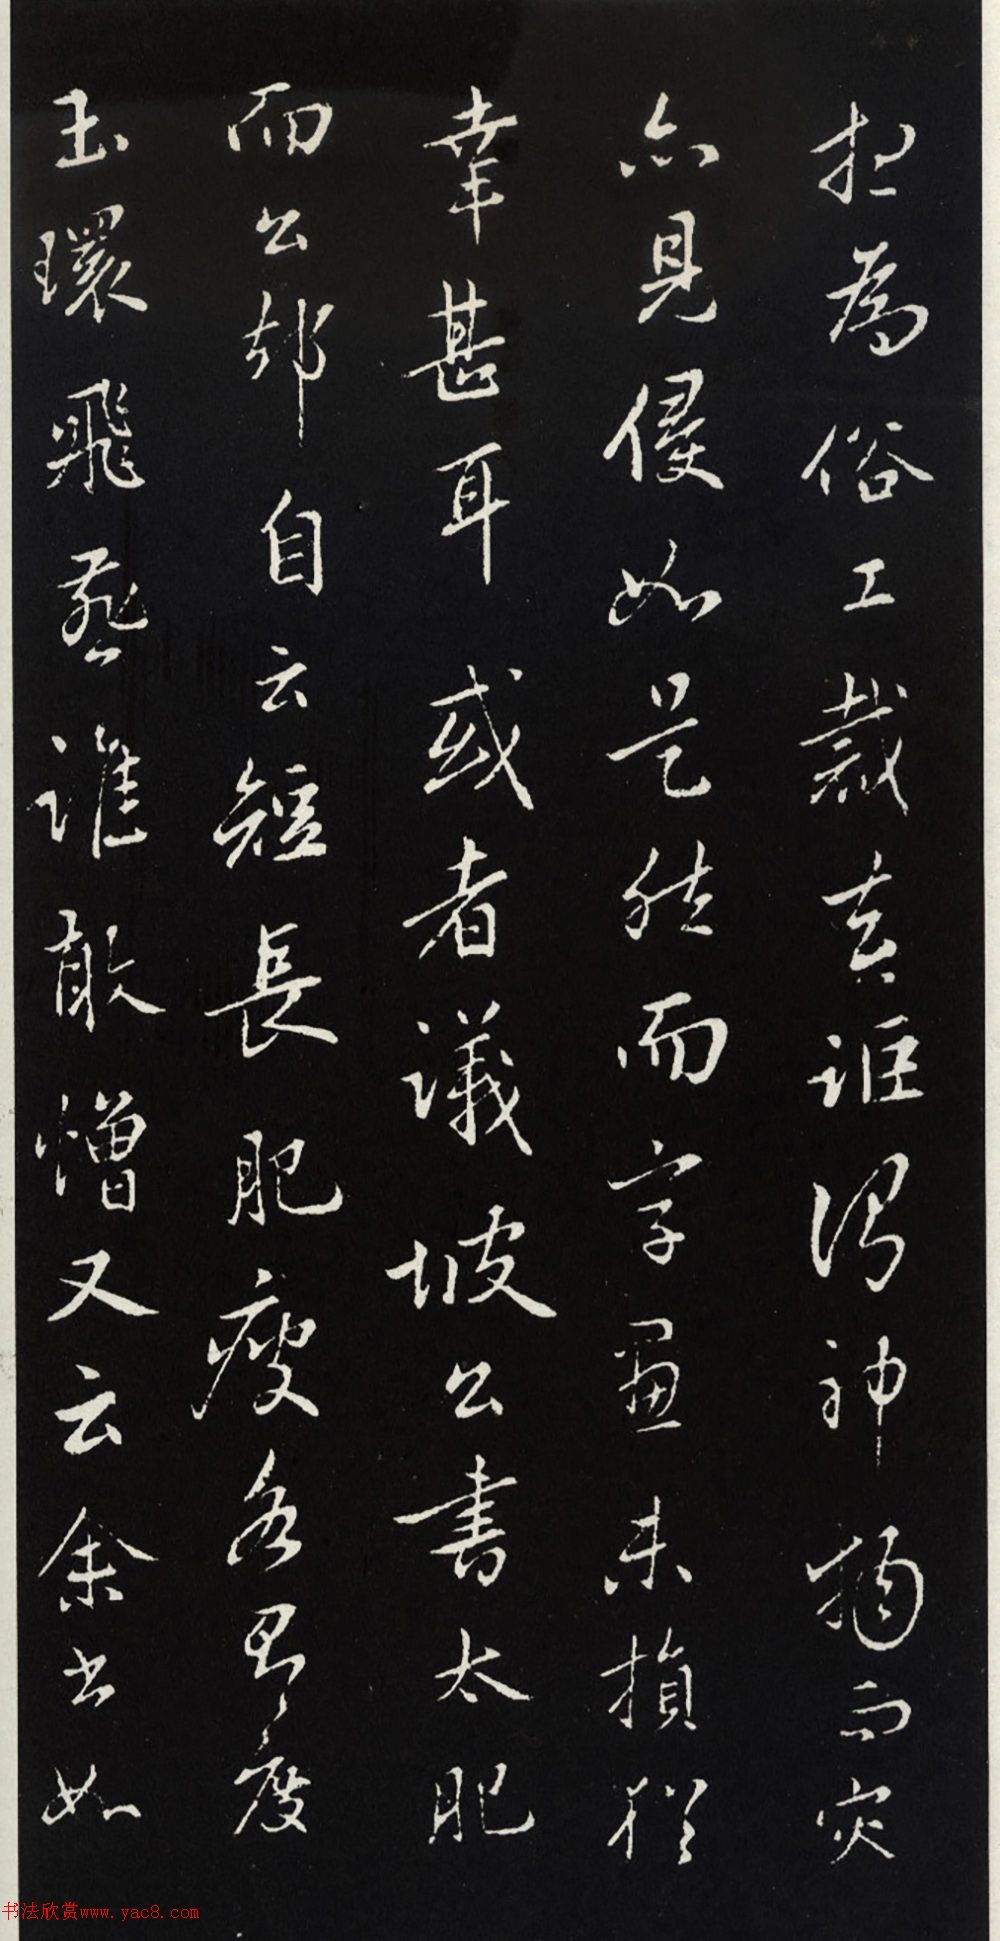 為俗工裁去詎謂神物而灾
亦見侵如是然而字畫未損猶
幸甚耳或者議坡公書太肥
而公却自云短長肥瘦各有度
玉環飛燕誰敢憎又云余書如
书法欣赏www.yac8.com